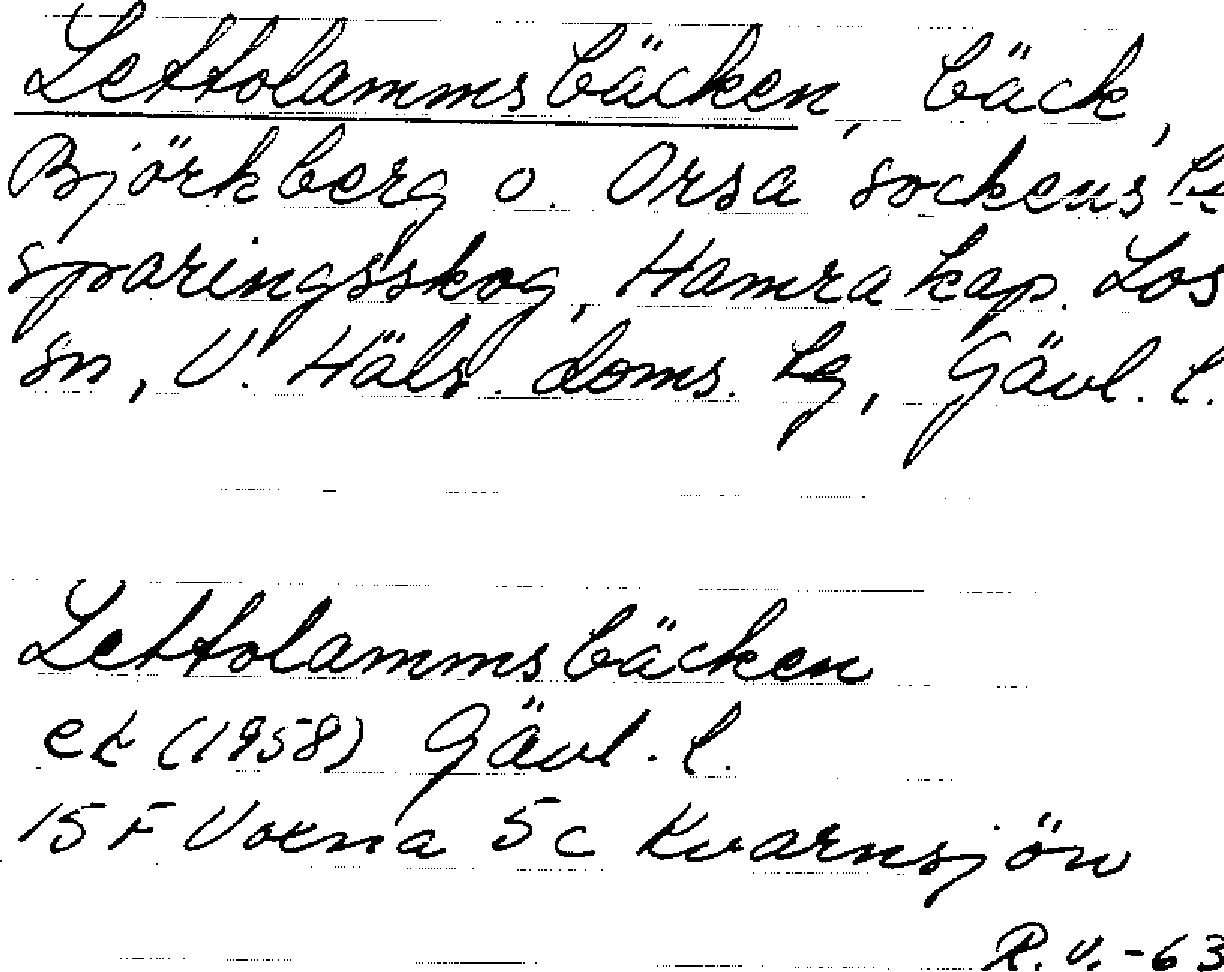 Lettolammsbäcken, bäck,
Björkberg o. Orsa sockens be
sparingsskog, Hamra kap. Los
sn, V. Häls. doms. lg, Gävl. l.
Lettolammsbäcken
ek (1958) Gävl. l.
15 F Voxna 5 c Kvarnsjön
R. V. -63